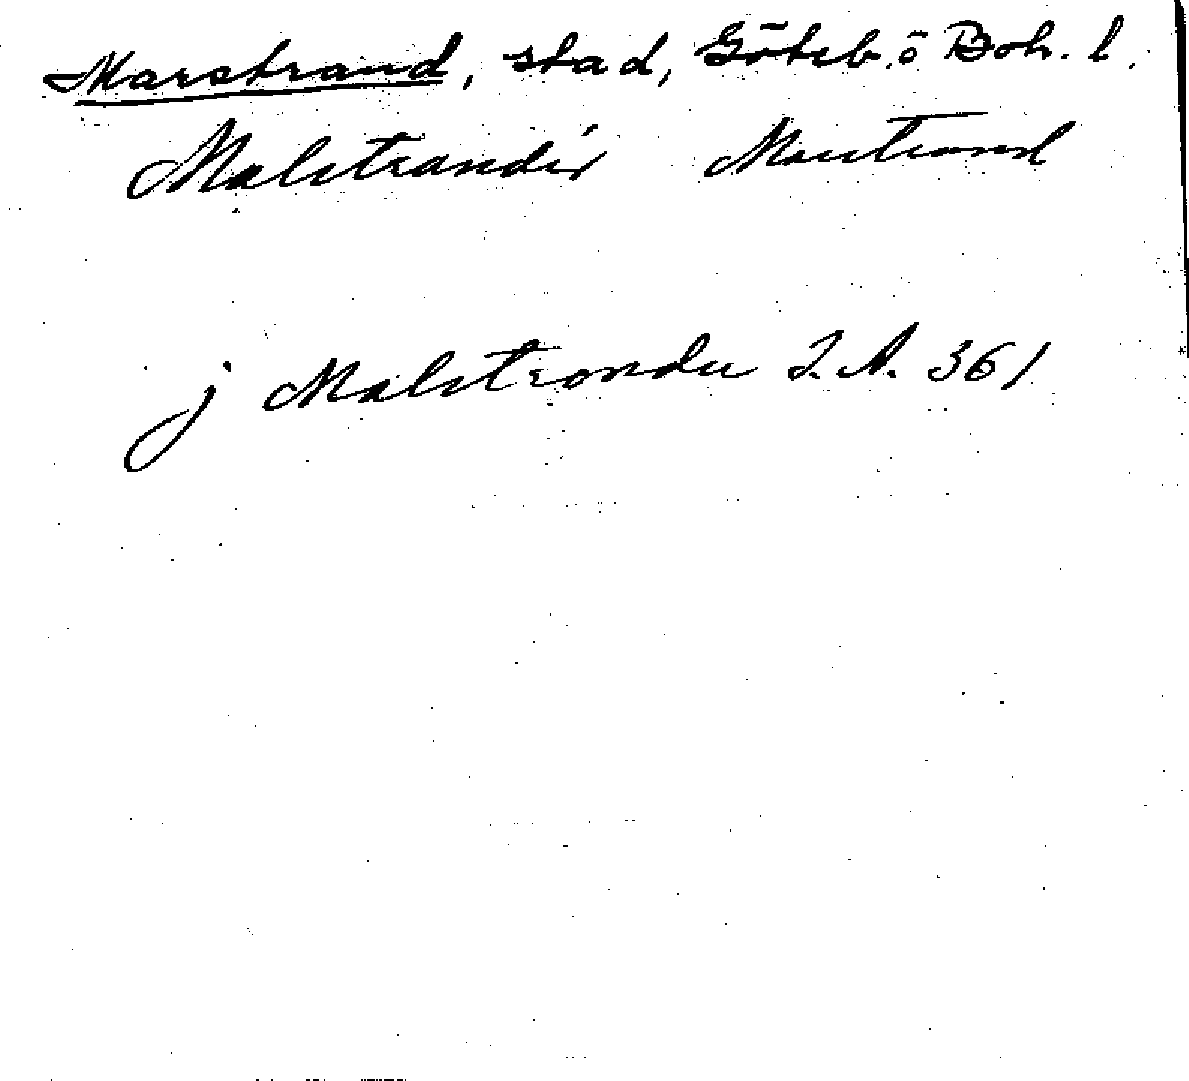 Marstrand, stad, Göteb. o Boh. l.
Malstrandir Marstrand
j Malstrondu I. A. 361